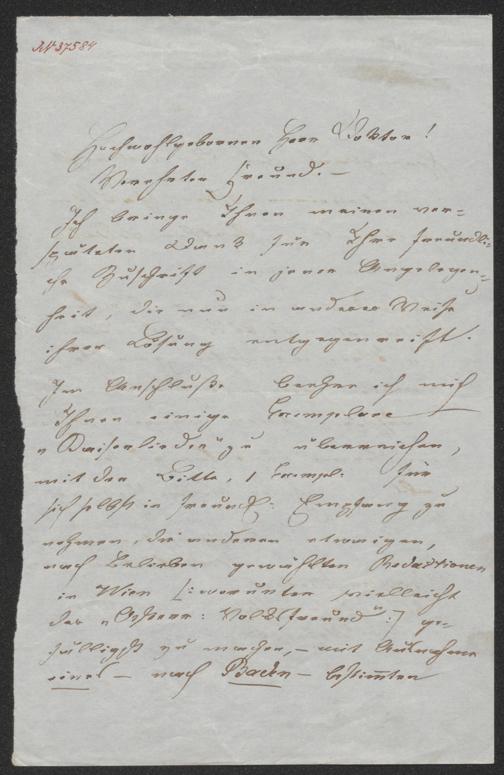 AN 37584
Hochwohlgeborener Herr Doktor!
Verehrter Freund. —
Ich bringe Ihnen meinen ver=
späteten Dank für Ihre freundli=
che Zuschrift in jener Angelegen=
heit, die nun in anderer Weise
ihrer Lösung entgegenreift.
Im Anschluße beehre ich mich
Ihnen einige Exemplare
"Kaiserlieder" zu überreichen,
mit der Bitte, 1 Exempl: für
sich selbst in freundl: Empfang zu
nehmen, die anderen etwaigen,
nach Belieben gewählten Redactionen
in Wien [: worunter vielleicht
der "Österr: Volksfreund" :] ge=
fälligst zu machen, — mit Ausnahme
eines — nach Baden — bestimmten